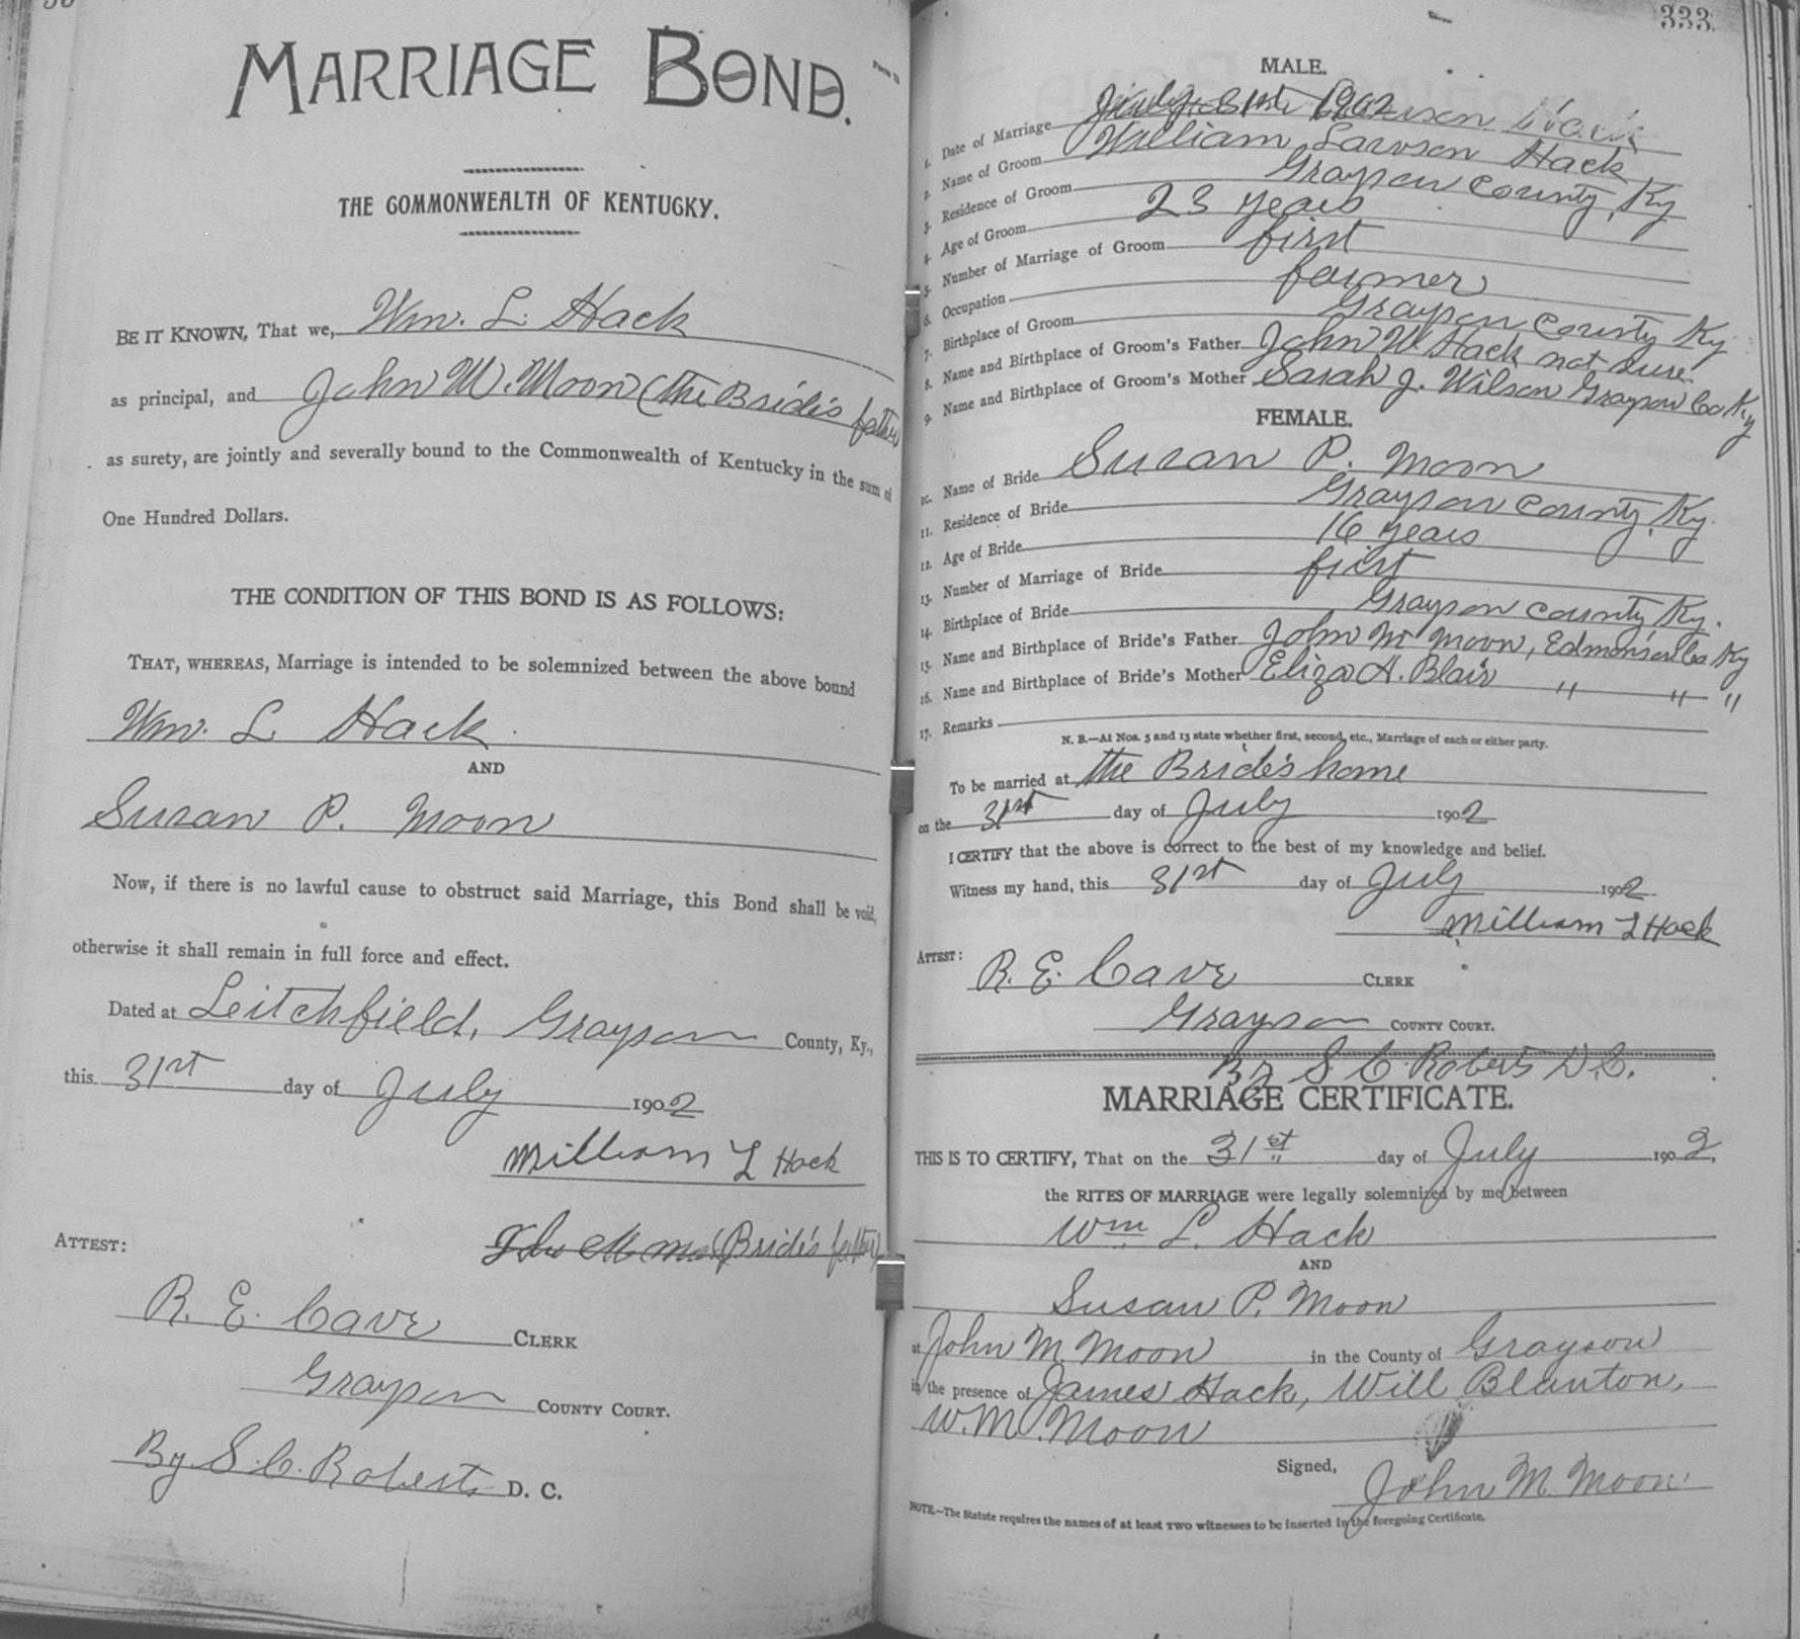 MARRIAGE BOND.
THE COMMONWEALTH OF KENTUCKY.
BE IT KNOWN, That we, Wm. L. Hack
as principal, and John M. Moon (the Bride's father
as surety, are jointly and severally bound to the Commonwealth of Kentucky in the sum of
One Hundred Dollars.
THE CONDITION OF THIS BOND IS AS FOLLOWS:
THAT, WHEREAS, Marriage is intended to be solemnized between the above bound
Wm. L Hack
AND
Susan P. Moon
Now, if there is no lawful cause to obstruct said Marriage, this Bond shall be void,
otherwise it shall remain in full force and effect.
Dated at Leitchfield, Grayson County, Ky.,
this 31st day of July 1902
William L Hack
(Bride's father)
ATTEST:
R. E. Cave CLERK
Grayson COUNTY COURT.
By S. C. Roberts D. C.
333
MALE.
1. Date of Marriage July 31st 1902
2. Name of Groom William Lawson Hack
3. Residence of Groom Grayson County, Ky
4. Age of Groom 23 years
5. Number of Marriage of Groom first
6. Occupation farmer
7. Birthplace of Groom Grayson County Ky
8. Name and Birthplace of Groom's Father John W. Hack not sure.
9. Name and Birthplace of Groom's Mother Sarah J. Wilson Grayson Co Ky
FEMALE.
10. Name of Bride Susan P. Moon
11. Residence of Bride Grayson County, Ky.
12. Age of Bride 16 years
13. Number of Marriage of Bride first
14. Birthplace of Bride Grayson County Ky.
15. Name and Birthplace of Bride's Father John M Moon, Edmonson Co Ky
16. Name and Birthplace of Bride's Mother Eliza A. Blair " " "
17. Remarks
N. B.—At Nos. 5 and 13 state whether first, second, etc., Marriage of each or either party.
To be married at the Bride's home
on the 31st day of July 1902
I CERTIFY that the above is correct to the best of my knowledge and belief.
Witness my hand, this 31st day of July 1902
William L Hack
ATTEST:
R. E. Cave CLERK
Grayson COUNTY COURT.
By S. C. Roberts D.C.
MARRIAGE CERTIFICATE.
THIS IS TO CERTIFY, That on the 31st day of July 1902.
the RITES OF MARRIAGE were legally solemnized by me between
Wm. L. Hack
AND
Susan P. Moon
at John M. Moon in the County of Grayson
in the presence of James Hack, Will Blanton,
W. M. Moon
Signed,
John M. Moon
NOTE.—The Statute requires the names of at least TWO witnesses to be inserted in the foregoing Certificate.